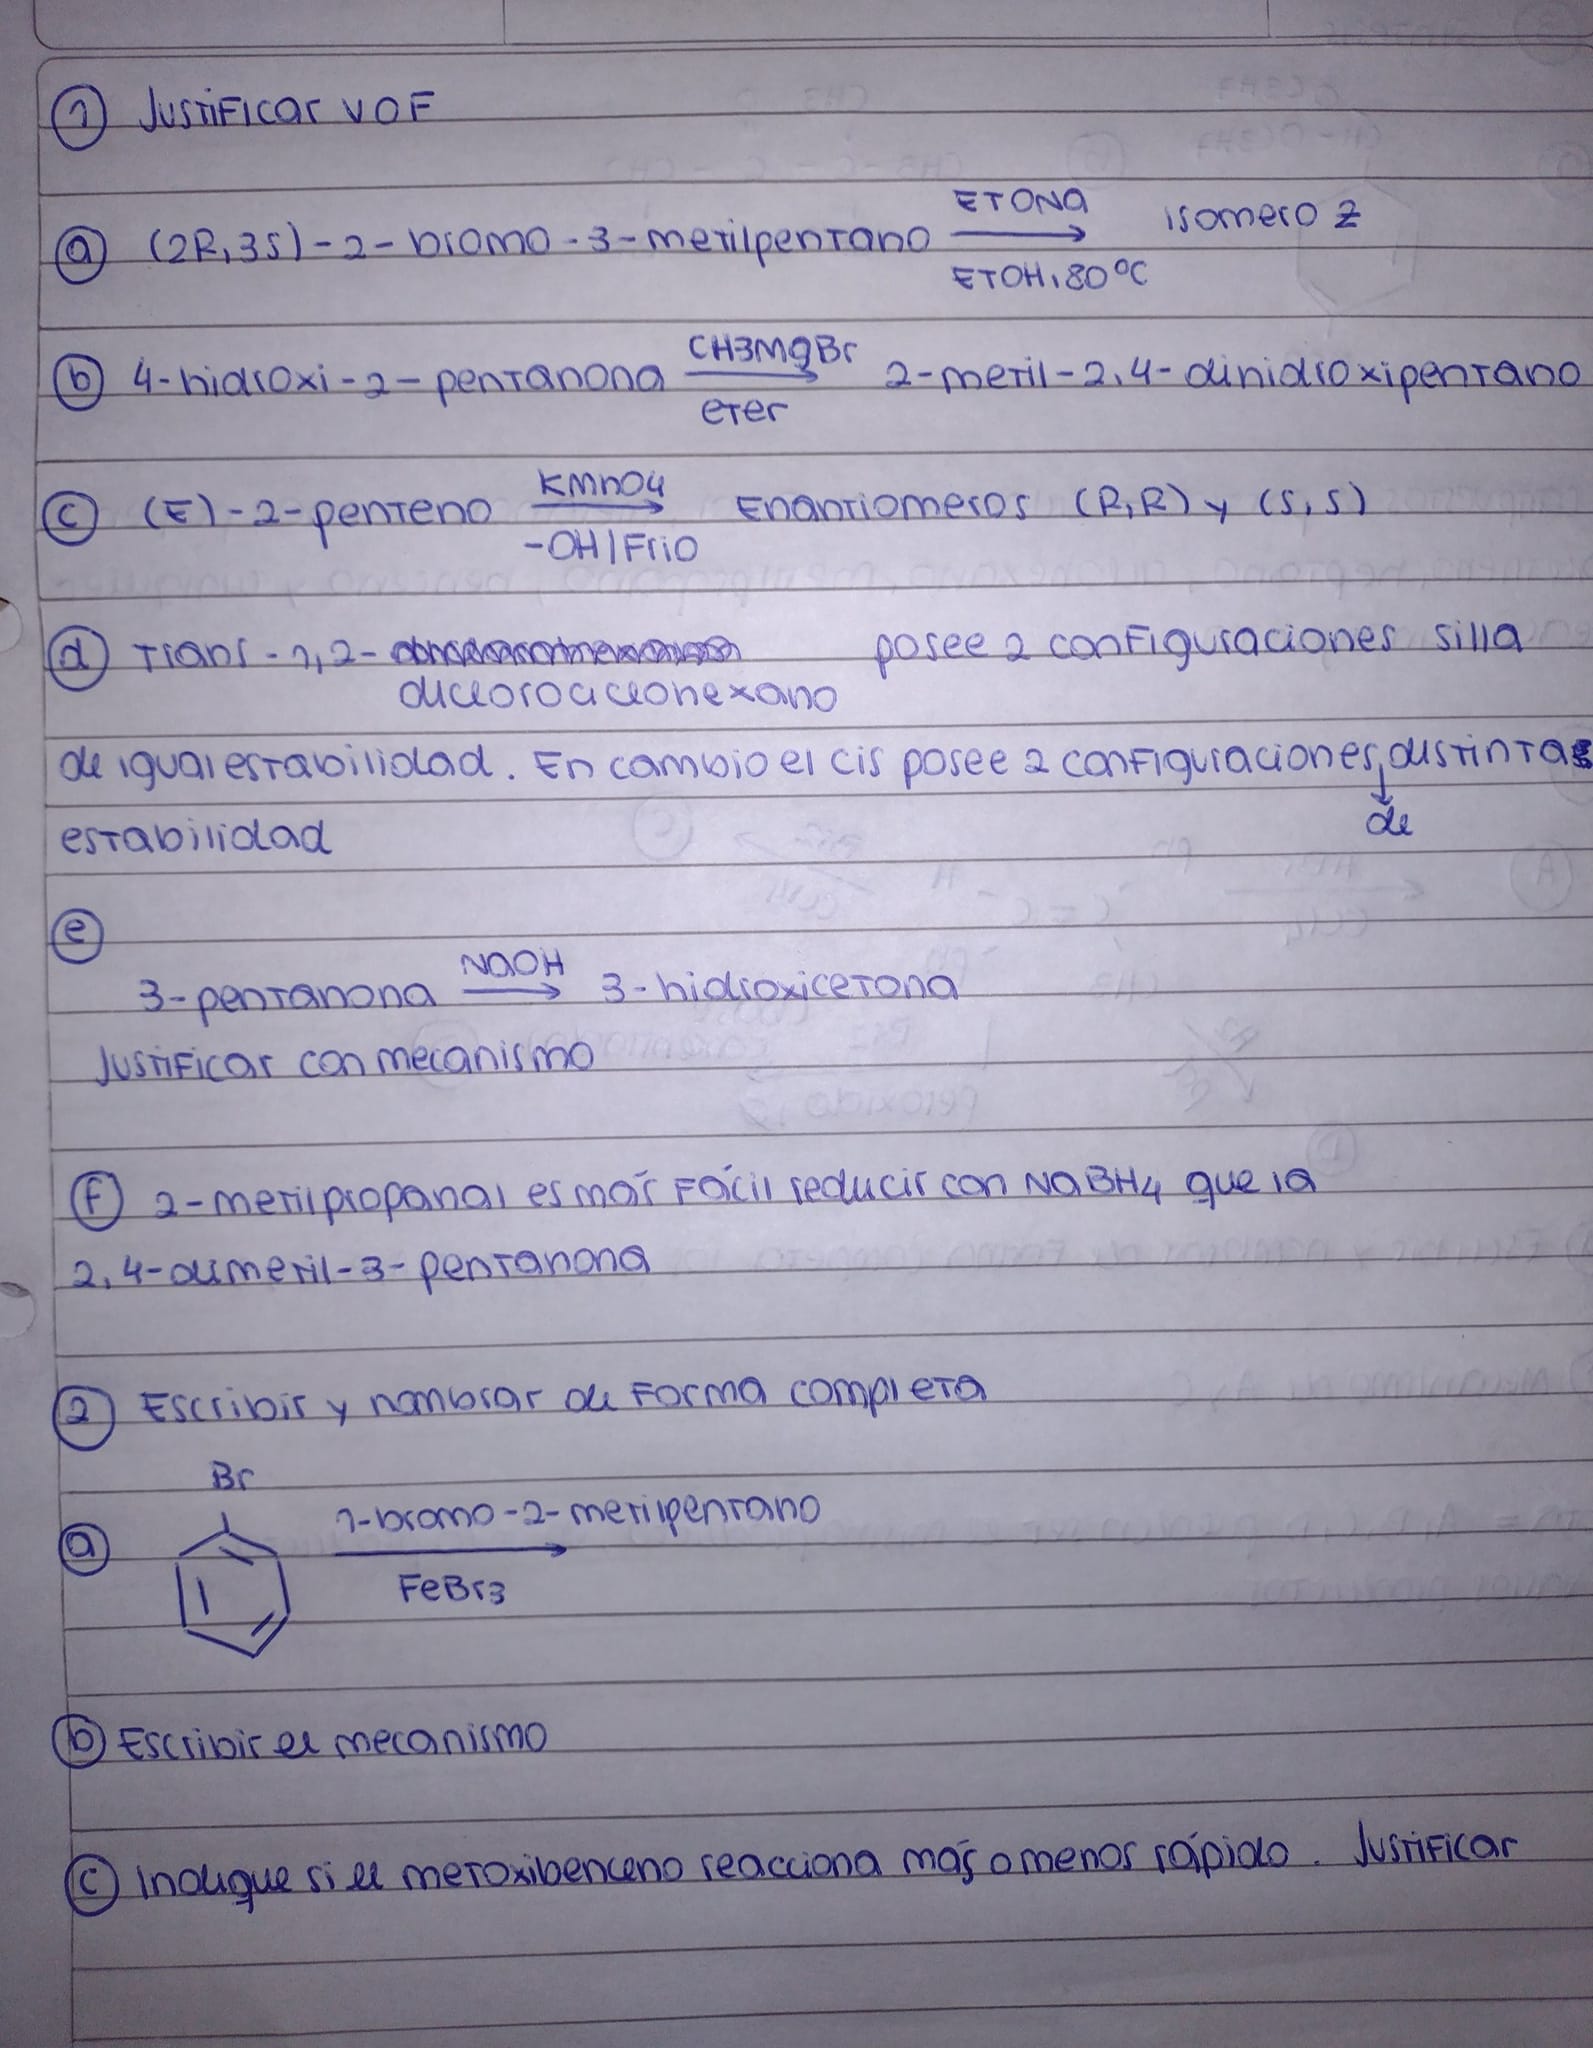 ① Justificar V o F
ⓐ (2R,3S)-2-bromo-3-metilpentano ETONa → ETOH, 80°C isomero Z
ⓑ 4-hidroxi-2-pentanona CH3MgBr → eter 2-metil-2,4-dihidroxipentano
ⓒ (E)-2-penteno KMnO4 → -OH/Frio Enantiomeros (R,R) y (S,S)
ⓓ Trans-1,2- posee 2 configuraciones silla
diclorociclohexano
de igual estabilidad. En cambio el cis posee 2 configuraciones, distintas
de
estabilidad
ⓔ
3-pentanona NaOH → 3-hidroxicetona
Justificar con mecanismo
ⓕ 2-metilpropanal es más fácil reducir con NaBH4 que la
2,4-dimetil-3-pentanona
② Escribir y nombrar de forma completa
Br
ⓐ 1-bromo-2-metilpentano → FeBr3
ⓑ Escribir el mecanismo
ⓒ Indique si el metoxibenceno reacciona más o menos rápido. Justificar